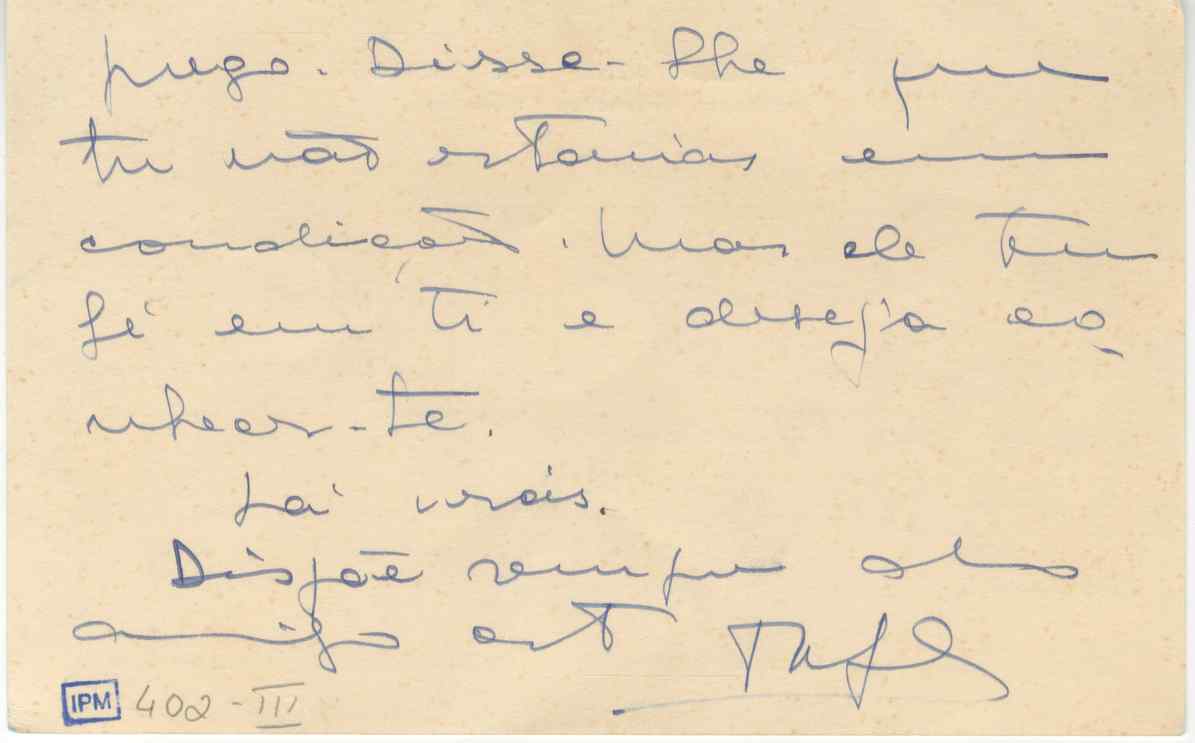 pugo. Disse-lhe que
tu não estarias em
condição. Mas ele tem
fé em ti e deseja co-
nhecer-te.
Lá irás.
Dispõe sempre do
amigo
IPM 402-III